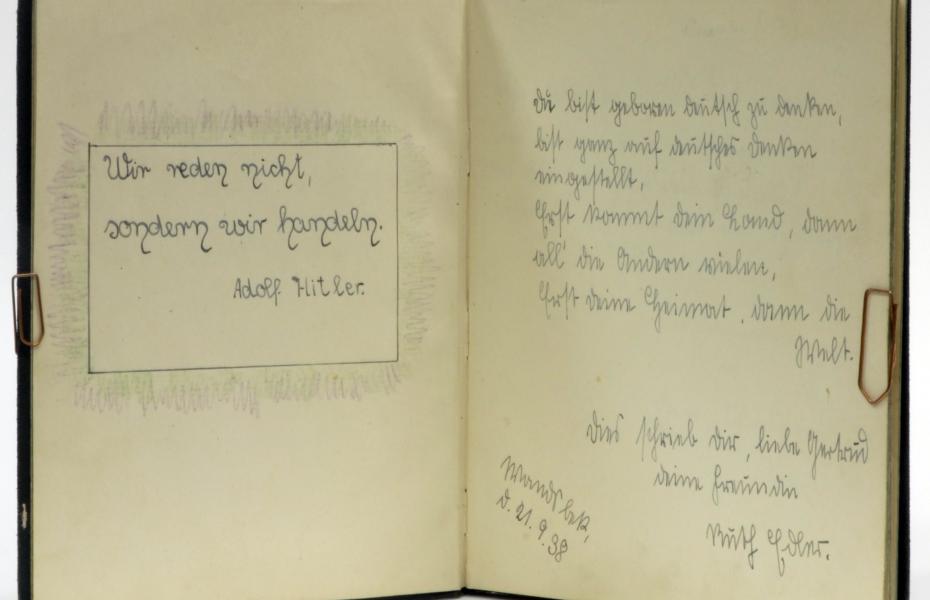 Wir reden nicht,
sondern wir handeln.
Adolf Hitler.
Du bist geboren deutsch zu denken,
bist ganz auf deutsches Denken
eingestellt,
Erst kommt dein Land, dann
all' die Andern vielen,
Erst deine Heimat, dann die
Welt.
Dies schrieb dir, liebe Gertrud
deine Freundin
Ruth Edler.
Wandsbek,
d. 21.9.38